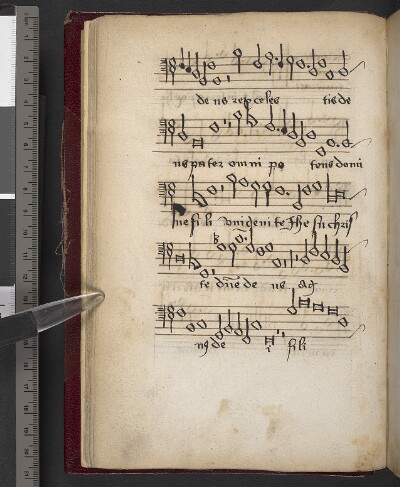 de us rex celes tis de
us pater omni po tens domi
ne fi li vnigeni te Jhesu chris
te dñe de us ag
nus de i fili